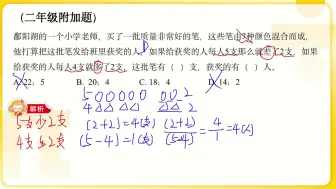 (二年级附加题)
鄱阳湖的一个小学老师,买了一批质量非常好的笔,这些笔由7种颜色混合而成,
他打算把这批笔发给班里获奖的人,如果给获奖的人每人5支那么就差了2支,如果
给获奖的人每人4支就多了2支,这批笔有( )支,获奖的有( )人。
A. 22;5 B. 20;4 C. 18;4 D. 14;2
解析
5支少2支
4支多2支
(2+2)=4(支)
(5-4)=1(支)
(2+2)
(5-4)
= 4/1 = 4(人)